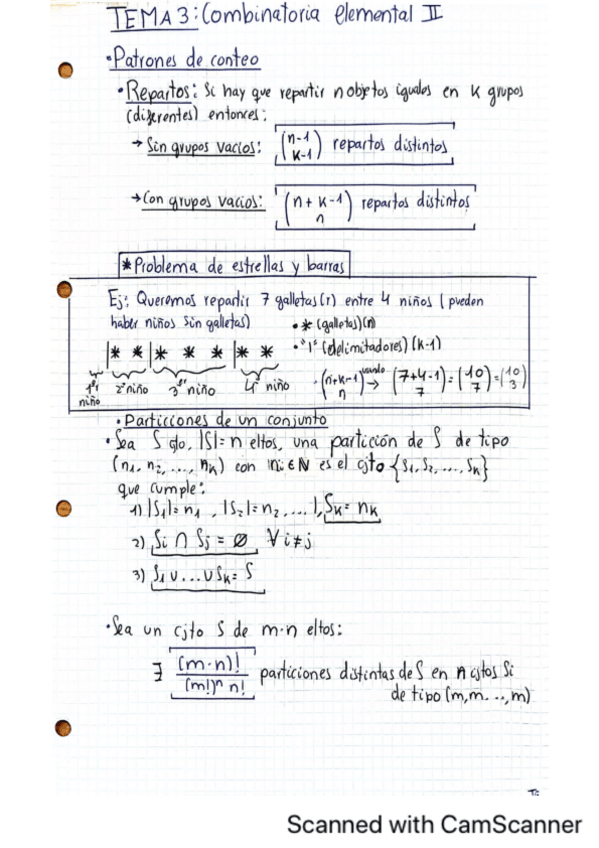 TEMA 3: Combinatoria elemental II
• Patrones de conteo
• Repartos: Si hay que repartir n objetos iguales en k grupos
(diferentes) entonces:
→ Sin grupos vacios: (n-1 k-1) repartos distintos
→ Con grupos vacios: (n+k-1 n) repartos distintos
* Problema de estrellas y barras
Ej: Queremos repartir 7 galletas (r) entre 4 niños (pueden
haber niños sin galletas)
• * (galletas)(n)
• "|" (delimitadores) (k-1)
|* *|* * *|* *
1er niño 2º niño 3er niño 4º niño
(n+k-1 n) → (7+4-1 7) = (10 7) = (10 3)
• Particiones de un conjunto
• Sea S cjto, |S|=n eltos, una partición de S de tipo
(n1, n2, ..., nk) con ni ∈ N es el cjto {S1, S2, ..., Sk}
que cumple:
1) |S1|=n1, |S2|=n2, ... |, Sk=nk
2) Si ∩ Sj = ∅ ∀ i≠j
3) S1 ∪ ... ∪ Sk = S
• Sea un cjto S de m·n eltos:
∃ (m·n)! / (m!)ⁿ n! particiones distintas de S en n cjtos Si
de tipo (m, m, ..., m)
Scanned with CamScanner